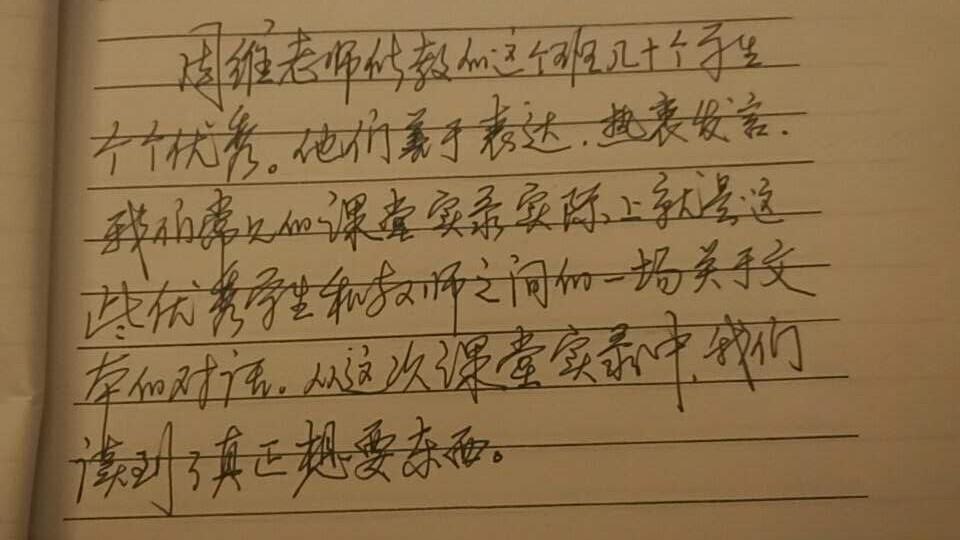 周维老师所教的这个班几十个学生
个个优秀。他们善于表达，热衷发言.
我们常见的课堂实录实际上就是这
些优秀学生和教师之间的一场关于文
本的对话。从这次课堂实录中，我们
读到了真正想要东西。